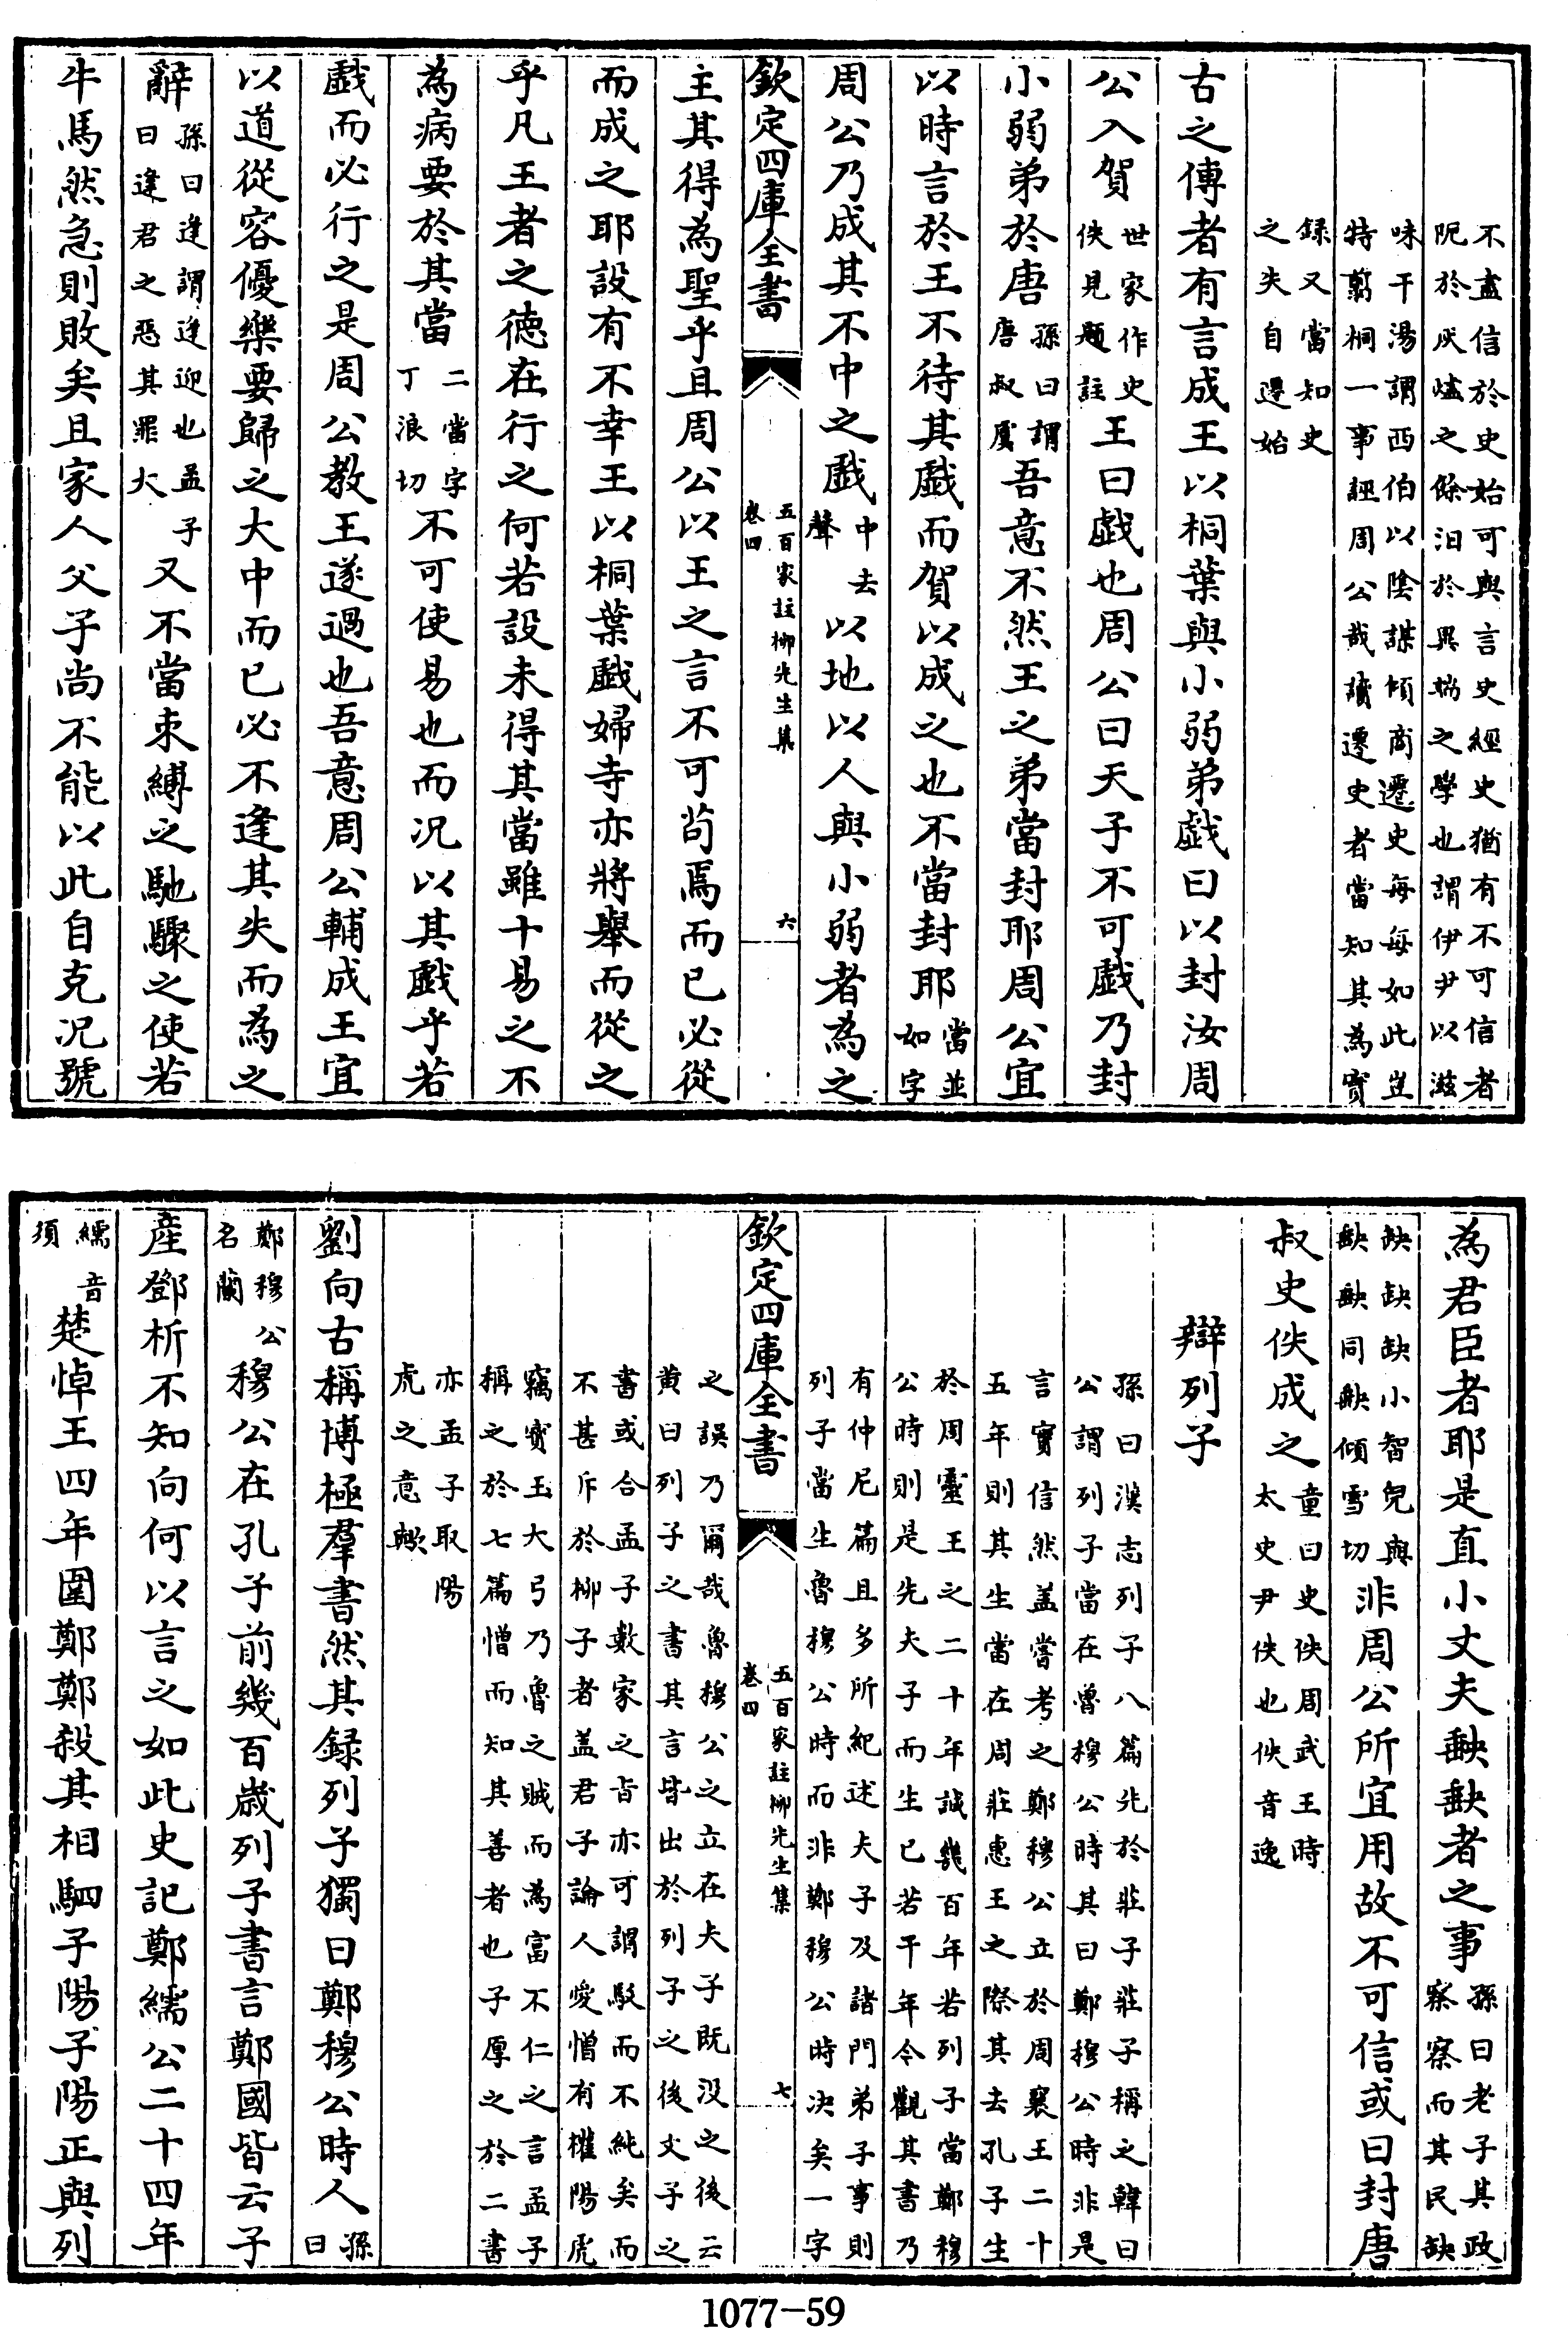 不盡信於史始可與言史經史猶有不可信者
阨於灰燼之餘汨於異端之學也謂伊尹以滋
味干湯謂西伯以陰謀傾商遷史每每如此豈
特翦桐一事誣周公哉讀遷史者當知其為實
録又當知史
之失自遷始
古之傳者有言成王以桐葉與小弱弟戯曰以封汝周
公入賀世家作史佚見題註王曰戯也周公曰天子不可戯乃封
小弱弟於唐孫曰謂唐叔虞吾意不然王之弟當封耶周公宜
以時言於王不待其戯而賀以成之也不當封耶當並如字
周公乃成其不中之戯中去聲以地以人與小弱者為之
欽定四庫全書 五百家註柳先生集 卷四 六
主其得為聖乎且周公以王之言不可苟焉而已必從
而成之耶設有不幸王以桐葉戯婦寺亦將舉而從之
乎凡王者之徳在行之何若設未得其當雖十易之不
為病要於其當二當字丁浪切不可使易也而况以其戯乎若
戯而必行之是周公教王遂過也吾意周公輔成王宜
以道從容優樂要歸之大中而已必不逢其失而為之
辭孫曰逢謂逢迎也孟子曰逢君之惡其罪大又不當束縛之馳驟之使若
牛馬然急則敗矣且家人父子尚不能以此自克况號
為君臣者耶是直小丈夫𡙇𡙇者之事孫曰老子其政察察而其民缺
缺缺缺小智皃與𡙇𡙇同𡙇傾雪切非周公所宜用故不可信或曰封唐
叔史佚成之童曰史佚周武王時太史尹佚也佚音逸
辯列子
孫曰漢志列子八篇先於莊子莊子稱之韓曰
公謂列子當在魯穆公時其曰鄭穆公時非是
言實信然盖嘗考之鄭穆公立於周襄王二十
五年則其生當在周莊惠王之際其去孔子生
於周靈王之二十年誠幾百年若列子當鄭穆
公時則是先夫子而生已若干年今觀其書乃
有仲尼篇且多所紀述夫子及諸門弟子事則
列子當生魯穆公時而非鄭穆公時决矣一字
欽定四庫全書 五百家註柳先生集 卷四 七
之誤乃爾哉魯穆公之立在夫子既没之後云
黄曰列子之書其言皆出於列子之後文子之
書或合孟子數家之旨亦可謂駁而不純矣而
不甚斥於柳子者盖君子論人愛憎有權陽虎
竊寳玉大弓乃魯之賊而為富不仁之言孟子
稱之於七篇憎而知其善者也子厚之於二書
亦孟子取陽
虎之意歟
劉向古稱博極羣書然其録列子獨曰鄭穆公時人孫曰
鄭穆公名蘭穆公在孔子前幾百歲列子書言鄭國皆云子
産鄧析不知向何以言之如此史記鄭繻公二十四年
繻音須楚悼王四年圍鄭鄭殺其相駟子陽子陽正與列
1077-59